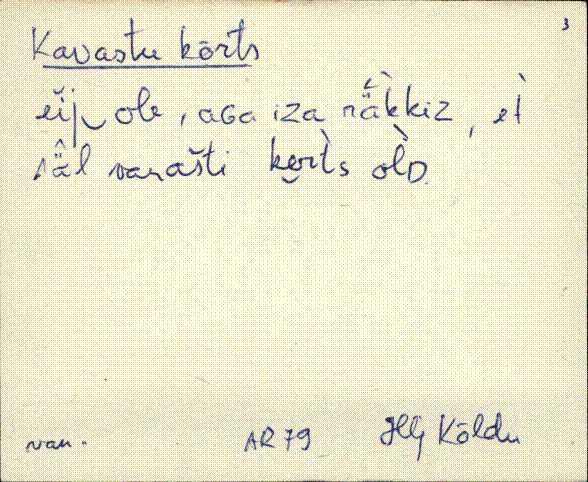 3
Kavastu kõrts
eij‿ole, aGa iza räkkiz, et
sä̂l vanašti kȩrt̀s ol̀D.
van. AR 79 Illj Kõldu